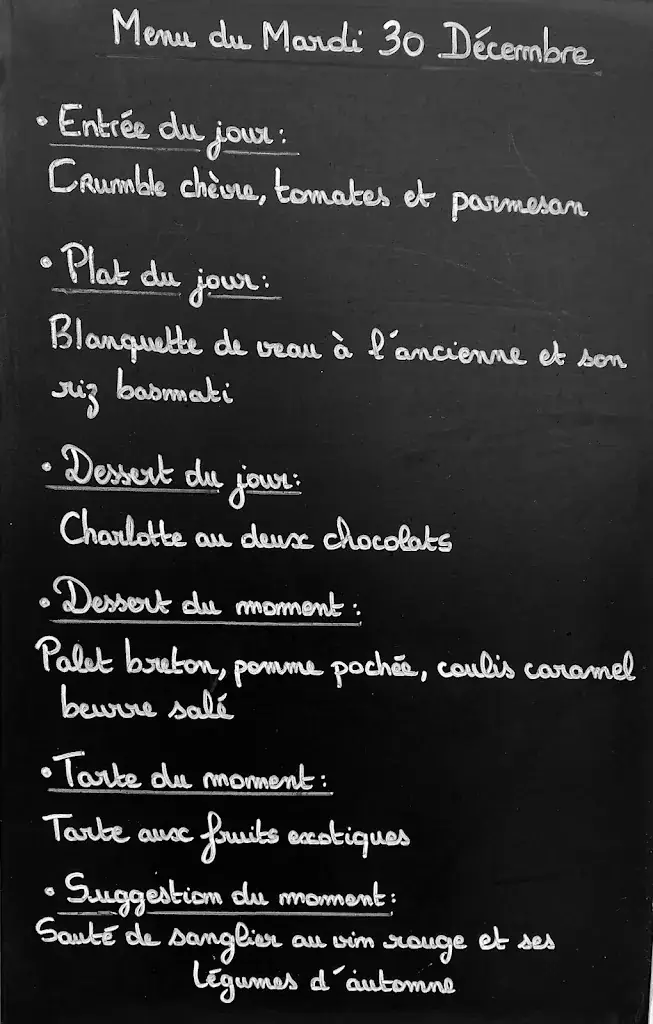 Menu du Mardi 30 Décembre
• Entrée du jour :
Crumble chèvre, tomates et parmesan
• Plat du jour :
Blanquette de veau à l'ancienne et son
riz basmati
• Dessert du jour :
Charlotte au deux chocolats
• Dessert du moment :
Palet breton, pomme pochée, coulis caramel
beurre salé
• Tarte du moment :
Tarte aux fruits exotiques
• Suggestion du moment :
Sauté de sanglier au vin rouge et ses
légumes d'automne